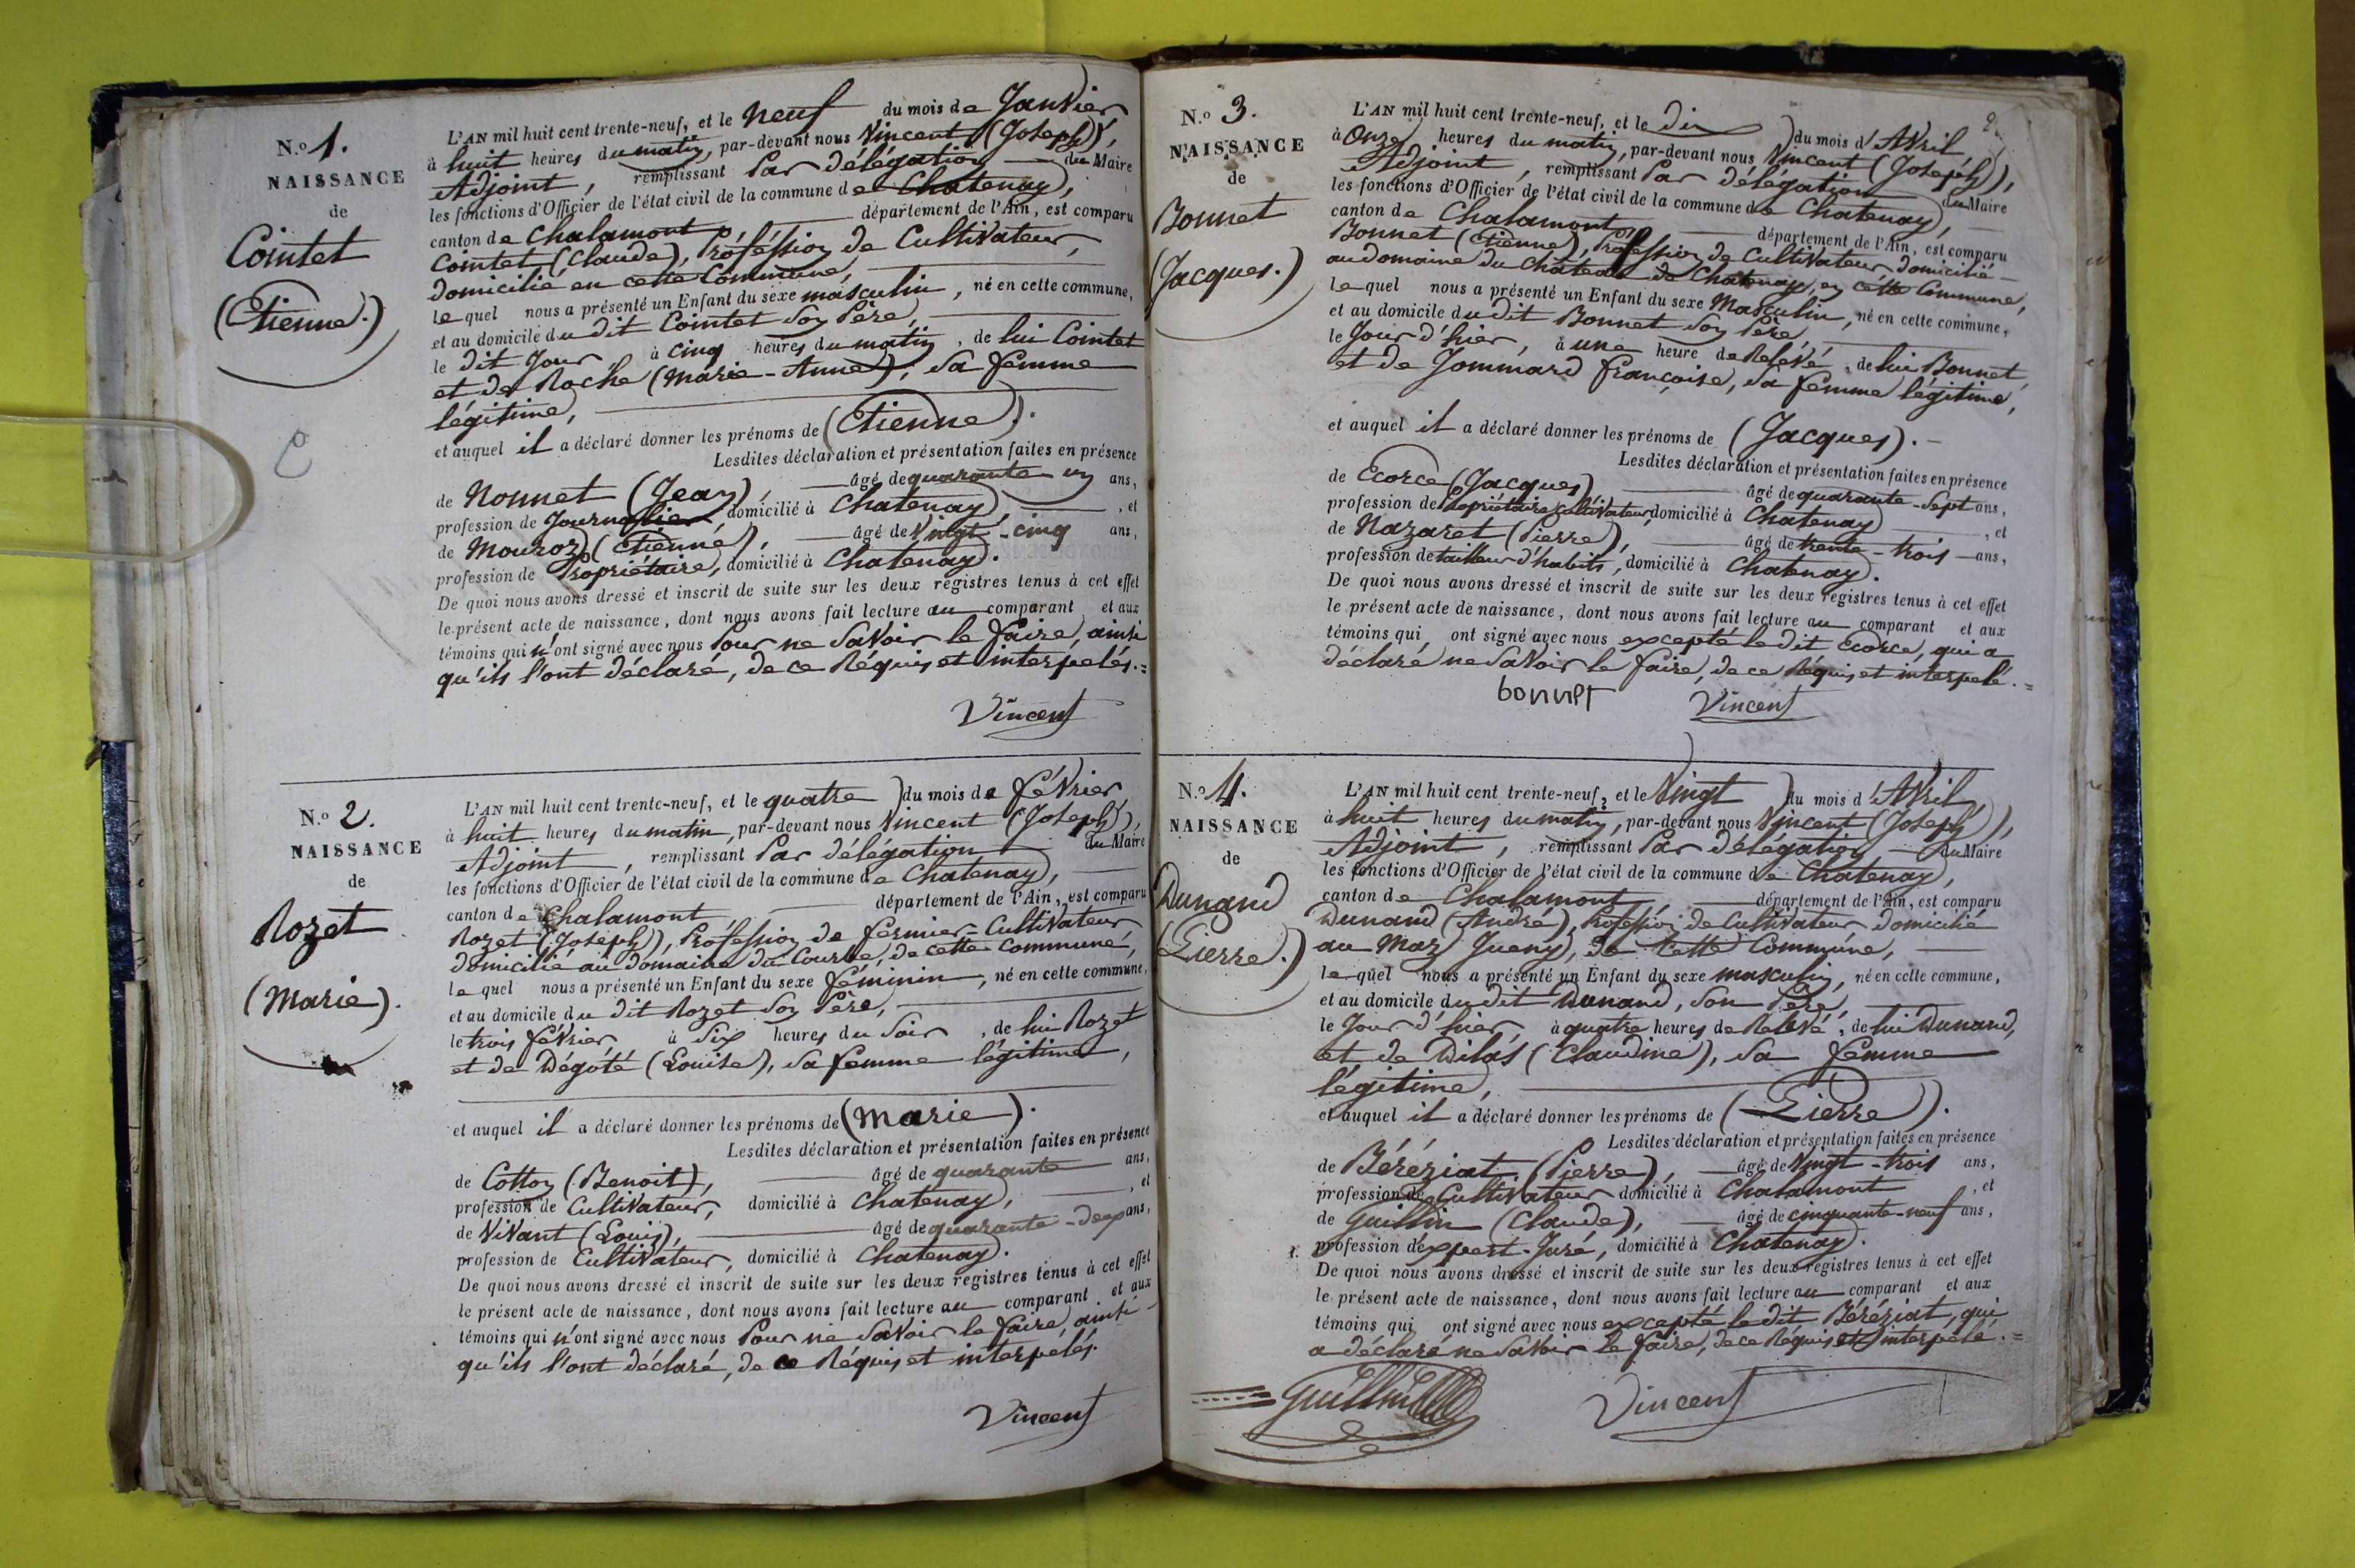 N.o 1.
NAISSANCE
de
Cointet
(Etienne.)
L'AN mil huit cent trente-neuf, et le neuf du mois de Janvier
à huit heures du matin, par-devant nous Vincent (Joseph),
Adjoint, remplissant Par délégation du Maire
les fonctions d'Officier de l'état civil de la commune de Chatenay,
canton de Chalamont département de l'Ain, est comparu
Cointet (Claude), Profession de Cultivateur,
domicilié en cette Commune,
lequel nous a présenté un Enfant du sexe masculin, né en cette commune,
et au domicile du dit Cointet son Père,
le dit Jour à cinq heures du matin, de lui Cointet
et de Roche (Marie-Anne), sa femme
légitime,
et auquel il a déclaré donner les prénoms de (Etienne).
Lesdites déclaration et présentation faites en présence
de Nonnet (Jean), âgé de quarante un ans,
profession de Journalier domicilié à Chatenay, et
de Mouroz (Etienne), âgé de Vingt-cinq ans,
profession de Propriétaire, domicilié à Chatenay.
De quoi nous avons dressé et inscrit de suite sur les deux registres tenus à cet effet
le présent acte de naissance, dont nous avons fait lecture au comparant et aux
témoins qui n'ont signé avec nous Pour ne Savoir le faire, ainsi
qu'ils l'ont déclaré, de ce Réquis et interpelés.=
Vincent
N.o 2.
NAISSANCE
de
Rozet
(Marie).
L'AN mil huit cent trente-neuf, et le quatre du mois de février
à huit heures du matin, par-devant nous Vincent (Joseph),
Adjoint, remplissant Par délégation du Maire
les fonctions d'Officier de l'état civil de la commune de Chatenay,
canton de Chalamont département de l'Ain, est comparu
Rozet (Joseph), Profession de fermier-Cultivateur
domicilié au domaine du Courbe, de cette Commune,
lequel nous a présenté un Enfant du sexe féminin, né en cette commune,
et au domicile du dit Rozet son Père,
le trois février à Six heures du Soir, de lui Rozet
et de Dégoté (Louise), sa femme légitime,
et auquel il a déclaré donner les prénoms de (Marie).
Lesdites déclaration et présentation faites en présence
de Cotton (Benoit), âgé de quarante ans,
profession de Cultivateur, domicilié à Chatenay, et
de Vivant (Louis), âgé de quarante-deux ans,
profession de Cultivateur, domicilié à Chatenay.
De quoi nous avons dressé et inscrit de suite sur les deux registres tenus à cet effet
le présent acte de naissance, dont nous avons fait lecture au comparant et aux
témoins qui n'ont signé avec nous Pour ne Savoir le faire, ainsi
qu'ils l'ont déclaré, de ce Réquis et interpelés.
Vincent
2.
N.o 3.
NAISSANCE
de
Bonnet
(Jacques.)
L'AN mil huit cent trente-neuf, et le dix du mois d'Avril
à Onze heures du matin, par-devant nous Vincent (Joseph),
Adjoint, remplissant Par délégation du Maire
les fonctions d'Officier de l'état civil de la commune de Chatenay,
canton de Chalamont département de l'Ain, est comparu
Bonnet (Etienne), Profession de Cultivateur, domicilié
au domaine du Château de Chatenay, en cette Commune,
lequel nous a présenté un Enfant du sexe Masculin, né en cette commune,
et au domicile du dit Bonnet son Père,
le Jour d'hier, à une heure de Relevé, de lui Bonnet,
et de Jommard françoise, sa femme légitime,
et auquel il a déclaré donner les prénoms de (Jacques).
Lesdites déclaration et présentation faites en présence
de Ecorce (Jacques) âgé de quarante-Sept ans,
profession de Propriétaire Cultivateur domicilié à Chatenay, et
de Nazaret (Pierre), âgé de trente-trois ans,
profession de tailleur d'habits, domicilié à Chatenay.
De quoi nous avons dressé et inscrit de suite sur les deux registres tenus à cet effet
le présent acte de naissance, dont nous avons fait lecture au comparant et aux
témoins qui ont signé avec nous excepté le dit Ecorce, qui a
déclaré ne Savoir le faire, de ce Réquis et interpelé.=
bonnet Vincent
N.o 4.
NAISSANCE
de
Dunand
(Pierre.)
L'AN mil huit cent trente-neuf, et le Vingt du mois d'Avril,
à huit heures du matin, par-devant nous Vincent (Joseph),
Adjoint, remplissant Par délégation du Maire
les fonctions d'Officier de l'état civil de la commune de Chatenay,
canton de Chalamont, département de l'Ain, est comparu
Dunand (André), Profession de Cultivateur, domicilié
au Maz Jueny, de Cette Commune,
lequel nous a présenté un Enfant du sexe masculin, né en cette commune,
et au domicile du dit Dunand, son Père,
le Jour d'hier, à quatre heures de Relevé, de lui Dunand,
et de Dilas (Claudine), sa femme
légitime,
et auquel il a déclaré donner les prénoms de (Pierre).
Lesdites déclaration et présentation faites en présence
de Béréziat (Pierre), âgé de Vingt-trois ans,
profession de Cultivateur domicilié à Chalamont, et
de Guillin (Claude), âgé de cinquante-neuf ans,
profession d'expert-Juré, domicilié à Chatenay.
De quoi nous avons dressé et inscrit de suite sur les deux registres tenus à cet effet
le présent acte de naissance, dont nous avons fait lecture au comparant et aux
témoins qui ont signé avec nous excepté le dit Béréziat, qui
a déclaré ne Savoir le faire, de ce Réquis et interpelé.=
Guillin Vincent